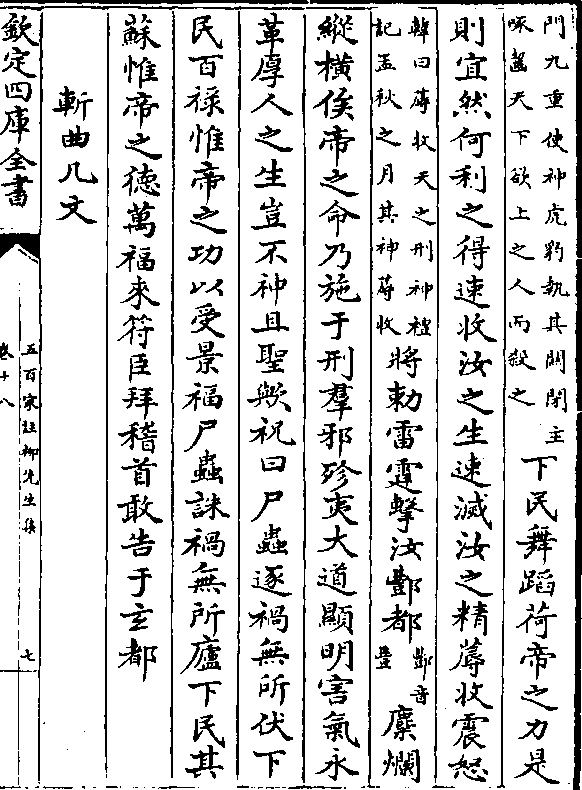 門九重使神虎豹執其關閉主
啄齧天下欲上之人而殺之
下民舞蹈荷帝之力是
則宜然何利之得速收汝之生速滅汝之精蓐收震怒
韓曰蓐收天之刑神禮
記孟秋之月其神蓐收
將勅雷霆擊汝酆都
酆音
豐
糜爛
縱橫俟帝之命乃施于刑羣邪殄夷大道顯明害氣永
革厚人之生豈不神且聖歟祝曰尸蟲逐禍無所伏下
民百禄惟帝之功以受景福尸蟲誅禍無所廬下民其
蘇惟帝之德萬福來符臣拜稽首敢告于玄都
斬曲几文
欽定四庫全書
五百家註柳先生集
卷十八
七